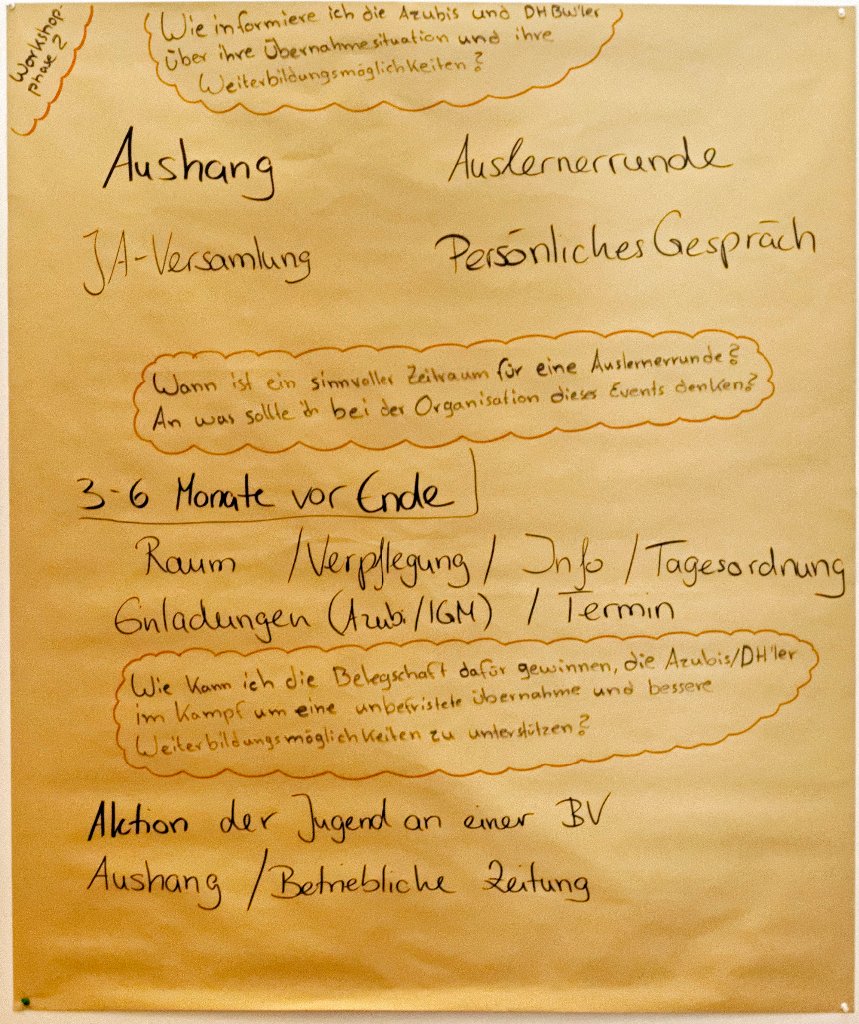 Workshop-
phase 2
Wie informiere ich die Azubis und DHBW'ler
über ihre Übernahmesituation und ihre
Weiterbildungsmöglichkeiten?
Aushang
Auslernerrunde
JA-Versamlung
Persönliches Gespräch
Wann ist ein sinnvoller Zeitraum für eine Auslernerrunde?
An was sollte ich bei der Organisation dieses Events denken?
3-6 Monate vor Ende
Raum / Verpflegung / Info / Tagesordnung
Einladungen (Azubi/IGM) / Termin
Wie kann ich die Belegschaft dafür gewinnen, die Azubis/DH'ler
im Kampf um eine unbefristete Übernahme und bessere
Weiterbildungsmöglichkeiten zu unterstützen?
Aktion der Jugend an einer BV
Aushang / Betriebliche Zeitung